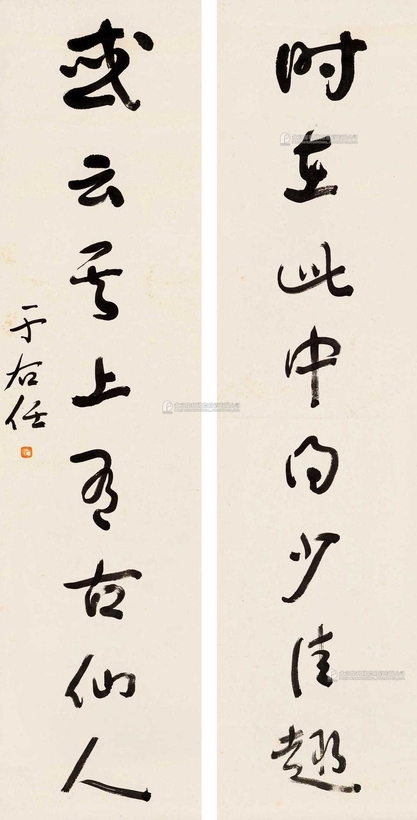 时在此中得少佳趣
或云其上有古仙人
于右任